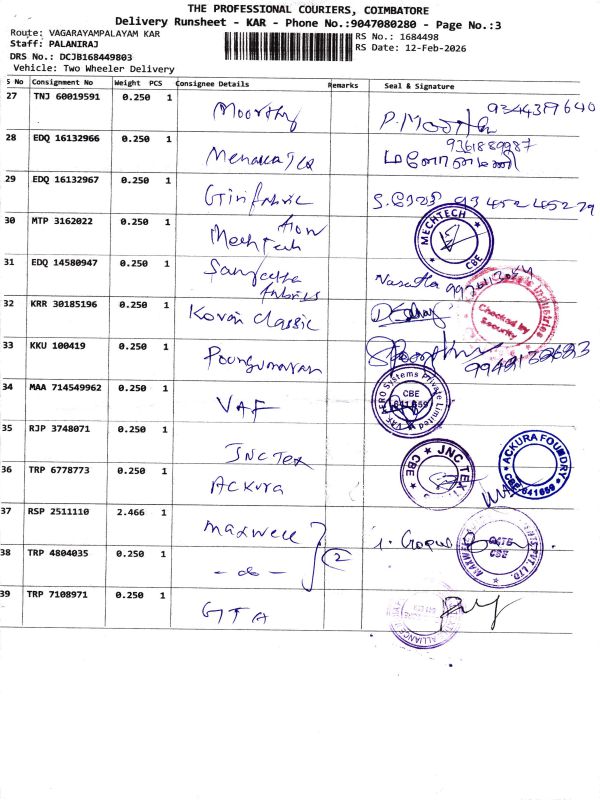 THE PROFESSIONAL COURIERS, COIMBATORE
Delivery Runsheet - KAR - Phone No.:9047080280 - Page No.:3
Route: VAGARAYAMPALAYAM KAR
RS No.: 1684498
Staff: PALANIRAJ
RS Date: 12-Feb-2026
DRS No.: DCJB168449803
Vehicle: Two Wheeler Delivery
S No Consignment No Weight PCS Consignee Details Remarks Seal & Signature
27 TNJ 60019591 0.250 1 Moorthy P. Moorthy
28 EDQ 16132966 0.250 1 9361889987
மனோன்மணி
29 EDQ 16132967 0.250 1 Giri fabric 93452 45279
tion
30 MTP 3162022 0.250 1 Mech Tech MECHTECH CBE
31 EDQ 14580947 0.250 1 Sangeetha
fabrics
32 KRR 30185196 0.250 1 Kovai Classic Checked by Security
33 KKU 100419 0.250 1
34 MAA 714549962 0.250 1 VAF Systems Private Limited CBE 641 659
35 RJP 3748071 0.250 1 JNC Tex JNC TEX CBE
36 TRP 6778773 0.250 1 Ackura ACKURA FOUNDRY CBE-641659
37 RSP 2511110 2.466 1 Maxwell CBE PVT. LTD.
38 TRP 4804035 0.250 1 - do - 2
39 TRP 7108971 0.250 1 GTA ALLIANCE